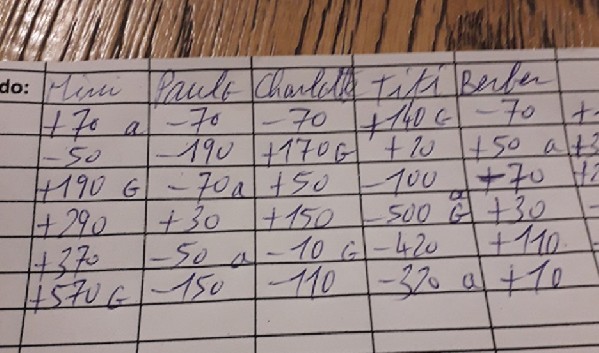 do: Mimi Paulo Charlotte Titi Berber
+70 a -70 -70 +140 G -70 +
-50 -190 +170 G +20 +50 a +3
+190 G -70 a +50 -100 +70 +2
+290 +30 +150 -500 a G +30 -
+370 -50 a -10 G -420 +110 -
+570 G -150 -110 -320 a +10